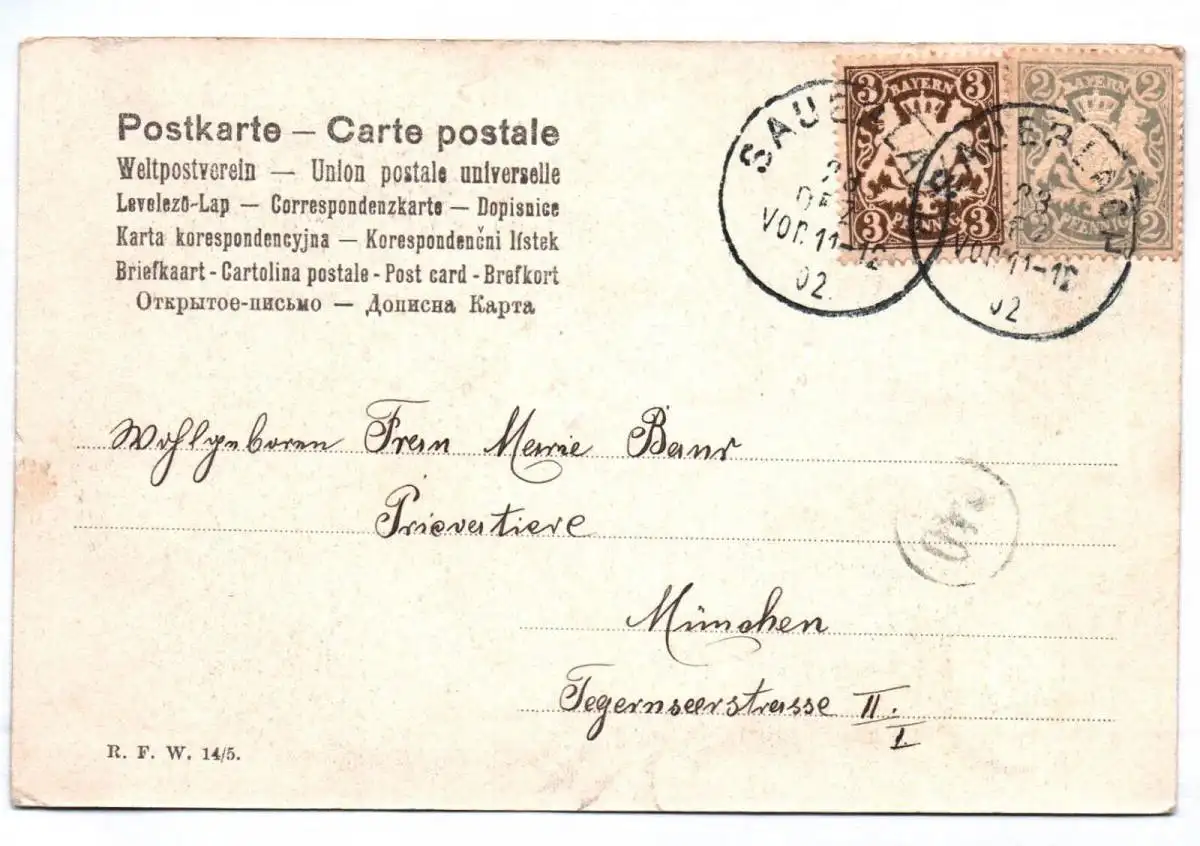 Postkarte – Carte postale
Weltpostverein — Union postale universelle
Levelező-Lap — Correspondenzkarte — Dopisnice
Karta korespondencyjna — Korespondenčni lístek
Briefkaart - Cartolina postale - Post card - Brefkort
Открытое-письмо — Дописна Карта
3 BAYERN 3
3 PFENNIG 3
2 BAYERN 2
2 2
SAUERLACH
23
DEZ
VOR. 11-12
02.
SAUERLACH
23
DEZ
VOR. 11-12
02
Wohlgeboren Frau Marie Baur
Prievatiere
München
Tegernseerstrasse II.
I.
R. F. W. 14/5.